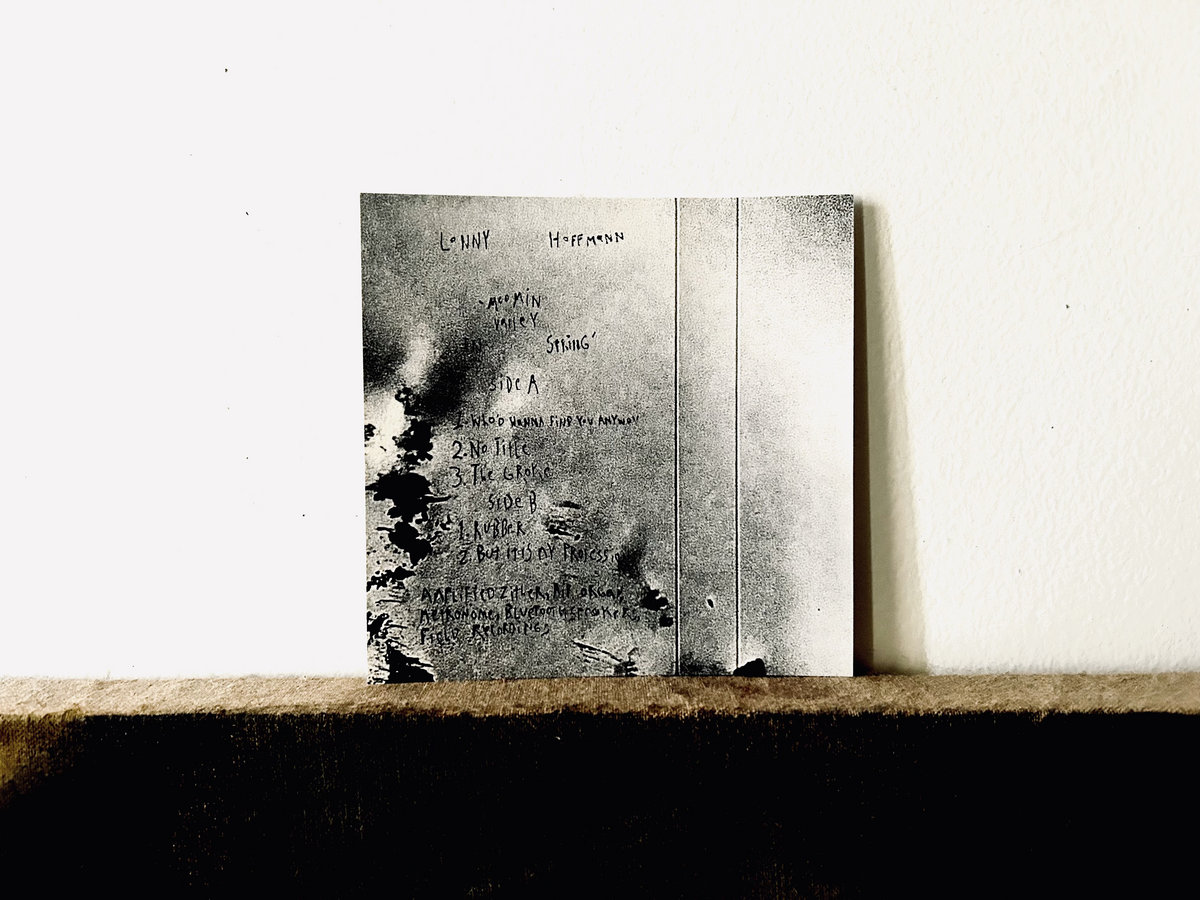 LaNNY HOFFMaNN
"MooMiN
VallEY
IN SPRiNG"
SiDE A
1. WHO'D WANNA FIND YOU ANYWAY
2. No TiTlE
3. THE GROKE
SiDE B
1. RUBBER
2. BUT IT IS MY
AMPLIFIED ZITHER, ORGAN,
METRONOME, BLUETOOTH SPEAKER,
FIELD RECORDINGS